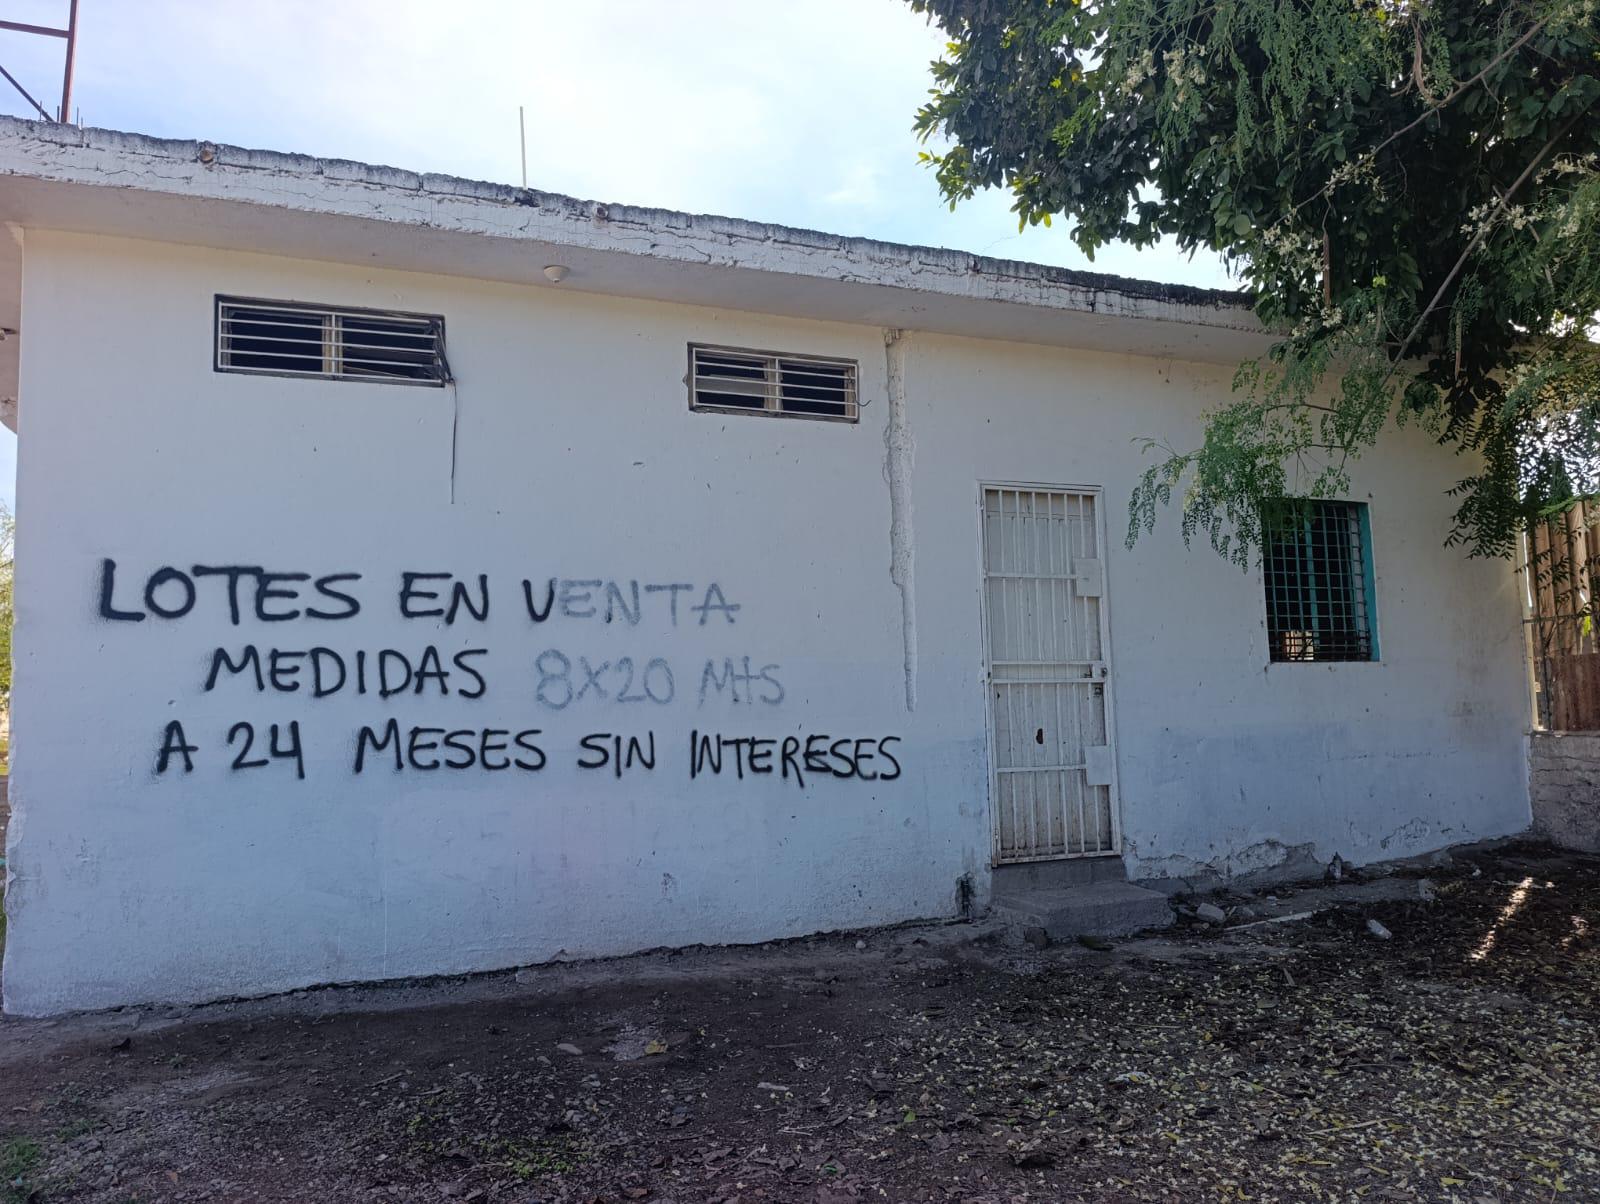 LOTES EN VENTA
MEDIDAS 8X20 MtS
A 24 MESES SIN INTERESES